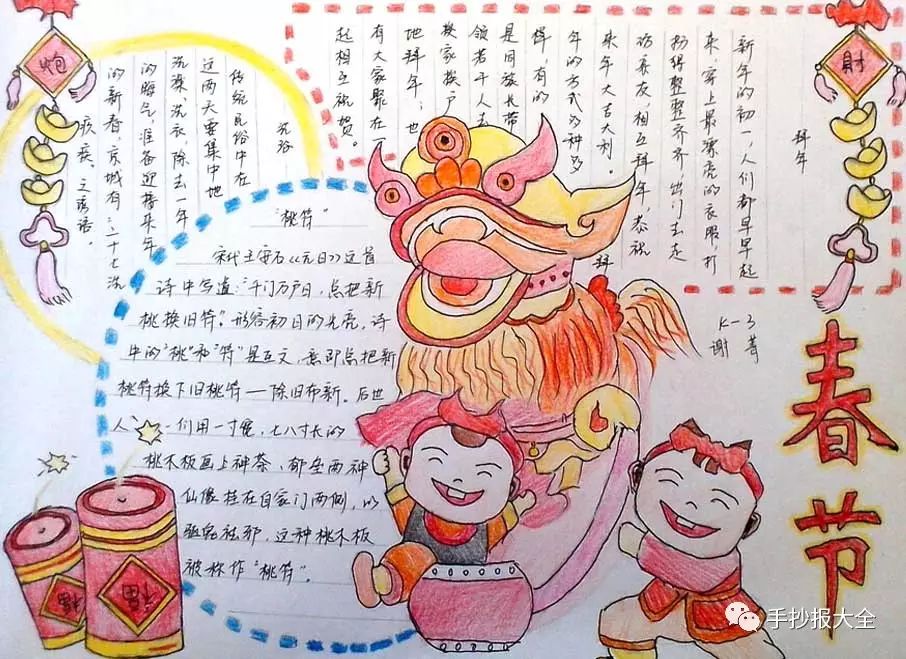 炮
財
拜年
新年的初一,人们都早早起
来,穿上最漂亮的衣服,打
扮得整整齐齐,出门去走
访亲友,相互拜年,恭祝
来年大吉大利。 拜
年的方式多种多
样,有的
是同族长带
领若干人去
挨家挨户
地拜年;也
有大家聚在
起相互祝贺。
传统民俗中在
这两天要集中地
洗澡、洗衣,除去一年
的晦气,准备迎接来年
的新春,京城有:二十七洗
疚疾、之谚语。
"桃符"
宋代王安石《元日》这首
诗中写道:"千门万户日,总把新
桃换旧符"。形容初日的光亮,诗
中的"桃"和"符"是互文,意即总把新
桃符换下旧桃符—除旧布新。后世
人们用一寸宽,七八寸长的
桃木板画上神荼、郁垒两神
仙像挂在自家门两侧,以
驱鬼祛邪,这种桃木板
被称作"桃符"。
K-3
谢菁
春节
福
福
手抄报大全